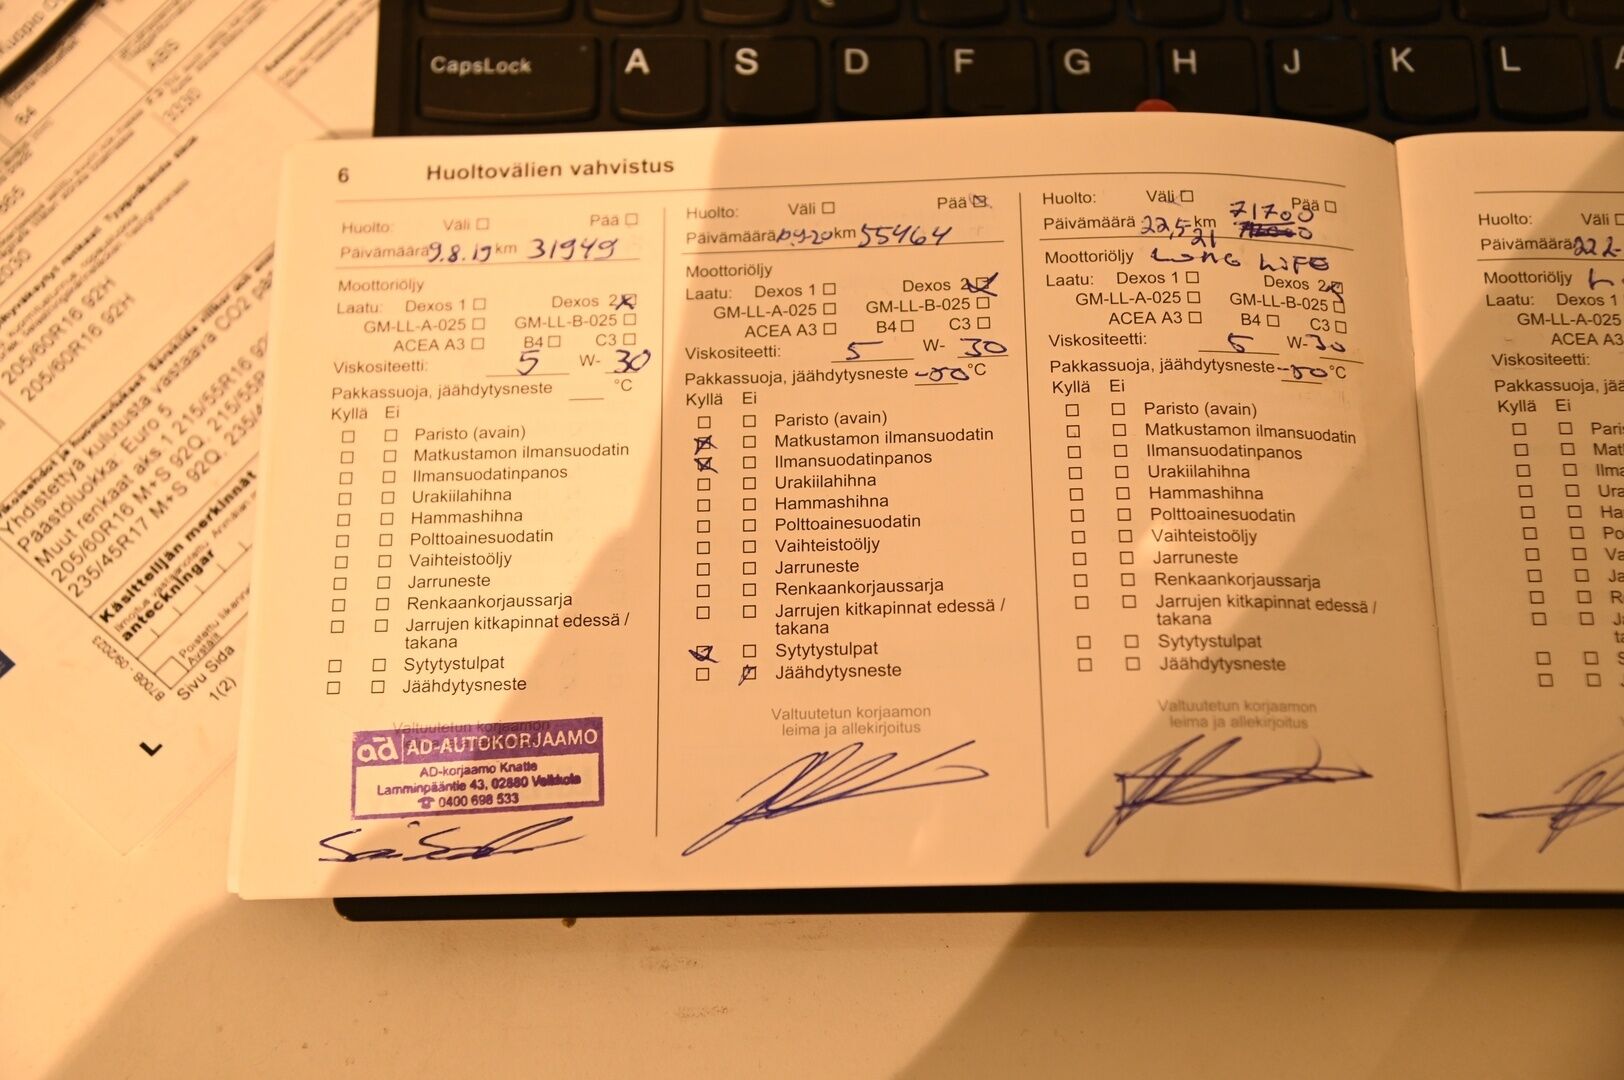 CapsLock A S D F G H J K L
ABS
3330
84
2030
205/60R16 92H
205/60R16 92H
Yhdistettyä kulutusta vastaava CO2
Päästöluokka: Euro 5
Muut renkaat aks 1 215/55R16
205/60R16 M+S 92Q, 215/55R
235/45R17 M+S 92Q, 235/4
Käsittelijän merkinnät
anteckningar
B7008 - 09/2023
Sivu Sida
1(2)
6 Huoltovälien vahvistus
Huolto: Väli ☐ Pää ☐
Päivämäärä 9.8.19 km 31949
Moottoriöljy
Laatu: Dexos 1 ☐ Dexos 2 ☒
GM-LL-A-025 ☐ GM-LL-B-025 ☐
ACEA A3 ☐ B4 ☐ C3 ☐
Viskositeetti: 5 W- 30
Pakkassuoja, jäähdytysneste ___ °C
Kyllä Ei
☐ ☐ Paristo (avain)
☐ ☐ Matkustamon ilmansuodatin
☐ ☐ Ilmansuodatinpanos
☐ ☐ Urakiilahihna
☐ ☐ Hammashihna
☐ ☐ Polttoainesuodatin
☐ ☐ Vaihteistoöljy
☐ ☐ Jarruneste
☐ ☐ Renkaankorjaussarja
☐ ☐ Jarrujen kitkapinnat edessä /
takana
☐ ☐ Sytytystulpat
☐ ☐ Jäähdytysneste
Valtuutetun korjaamon
ad AD-AUTOKORJAAMO
AD-korjaamo Knatte
Lamminpääntie 43, 02880 Veikkola
☎ 0400 698 533
Huolto: Väli ☐ Pää ☒
Päivämäärä km 55464
Moottoriöljy
Laatu: Dexos 1 ☐ Dexos 2 ☒
GM-LL-A-025 ☐ GM-LL-B-025 ☐
ACEA A3 ☐ B4 ☐ C3 ☐
Viskositeetti: 5 W- 30
Pakkassuoja, jäähdytysneste °C
Kyllä Ei
☐ ☐ Paristo (avain)
☒ ☐ Matkustamon ilmansuodatin
☒ ☐ Ilmansuodatinpanos
☐ ☐ Urakiilahihna
☐ ☐ Hammashihna
☐ ☐ Polttoainesuodatin
☐ ☐ Vaihteistoöljy
☐ ☐ Jarruneste
☐ ☐ Renkaankorjaussarja
☐ ☐ Jarrujen kitkapinnat edessä /
takana
☒ ☐ Sytytystulpat
☐ ☒ Jäähdytysneste
Valtuutetun korjaamon
leima ja allekirjoitus
Huolto: Väli ☐ Pää ☐
Päivämäärä 22,5,21 km 71700
Moottoriöljy LONG LIFE
Laatu: Dexos 1 ☐ Dexos 2 ☒
GM-LL-A-025 ☐ GM-LL-B-025 ☐
ACEA A3 ☐ B4 ☐ C3 ☐
Viskositeetti: 5 W- 30
Pakkassuoja, jäähdytysneste °C
Kyllä Ei
☐ ☐ Paristo (avain)
☐ ☐ Matkustamon ilmansuodatin
☐ ☐ Ilmansuodatinpanos
☐ ☐ Urakiilahihna
☐ ☐ Hammashihna
☐ ☐ Polttoainesuodatin
☐ ☐ Vaihteistoöljy
☐ ☐ Jarruneste
☐ ☐ Renkaankorjaussarja
☐ ☐ Jarrujen kitkapinnat edessä /
takana
☐ ☐ Sytytystulpat
☐ ☐ Jäähdytysneste
Valtuutetun korjaamon
leima ja allekirjoitus
Huolto: Väli ☐
Päivämäärä
Moottoriöljy
Laatu: Dexos 1 ☐
GM-LL-A-025
ACEA A3
Viskositeetti:
Pakkassuoja, jää
Kyllä Ei